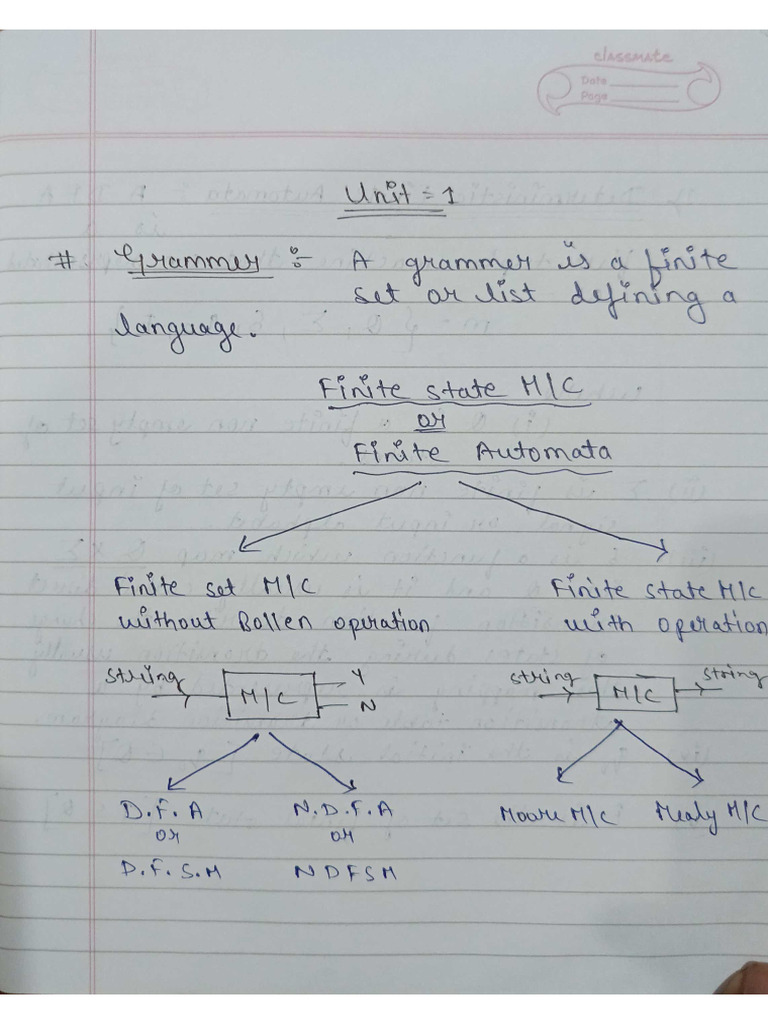 classmate
Date
Page
Unit = 1
# Grammer :- A grammer is a finite
set or list defining a
language.
Finite state M/C
or
Finite Automata
Finite set M/C Finite state M/C
without Bollen operation with operation
string M/C Y N string M/C string
D.F.A N.D.F.A Moore M/C Mealy M/C
or or
D.F.S.M NDFSM